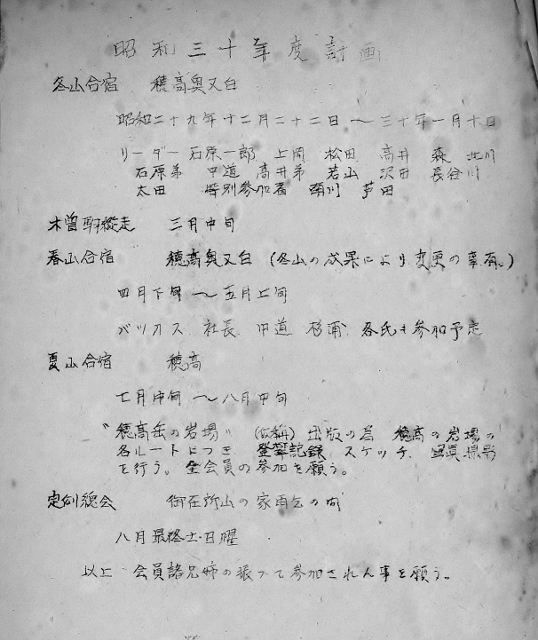 昭和三十年度計画
冬山合宿 穂高奥又白
昭和二十九年十二月二十二日〜三十年一月十日
リーダー 石原一郎 上岡 松田 高井 森 北川
石原弟 中道 高井弟 若山 沢田 長谷川
太田 特別参加者 芦田
木曽駒縦走 三月中旬
春山合宿 穂高奥又白 (冬山の成果により変更の事有。)
四月下旬〜五月上旬
バッカス 社長 中道 杉浦 各氏も参加予定
夏山合宿 穂高
七月中旬〜八月中旬
“穂高岳の岩場” (仮称) 出版の為 穂高の岩場の
各ルートにつき 登攀記録 スケッチ 写真撮影
を行う。全会員の参加を願う。
定例総会 御在所山の家
八月最終土・日曜
以上 会員諸兄姉の振って参加されん事を願う。